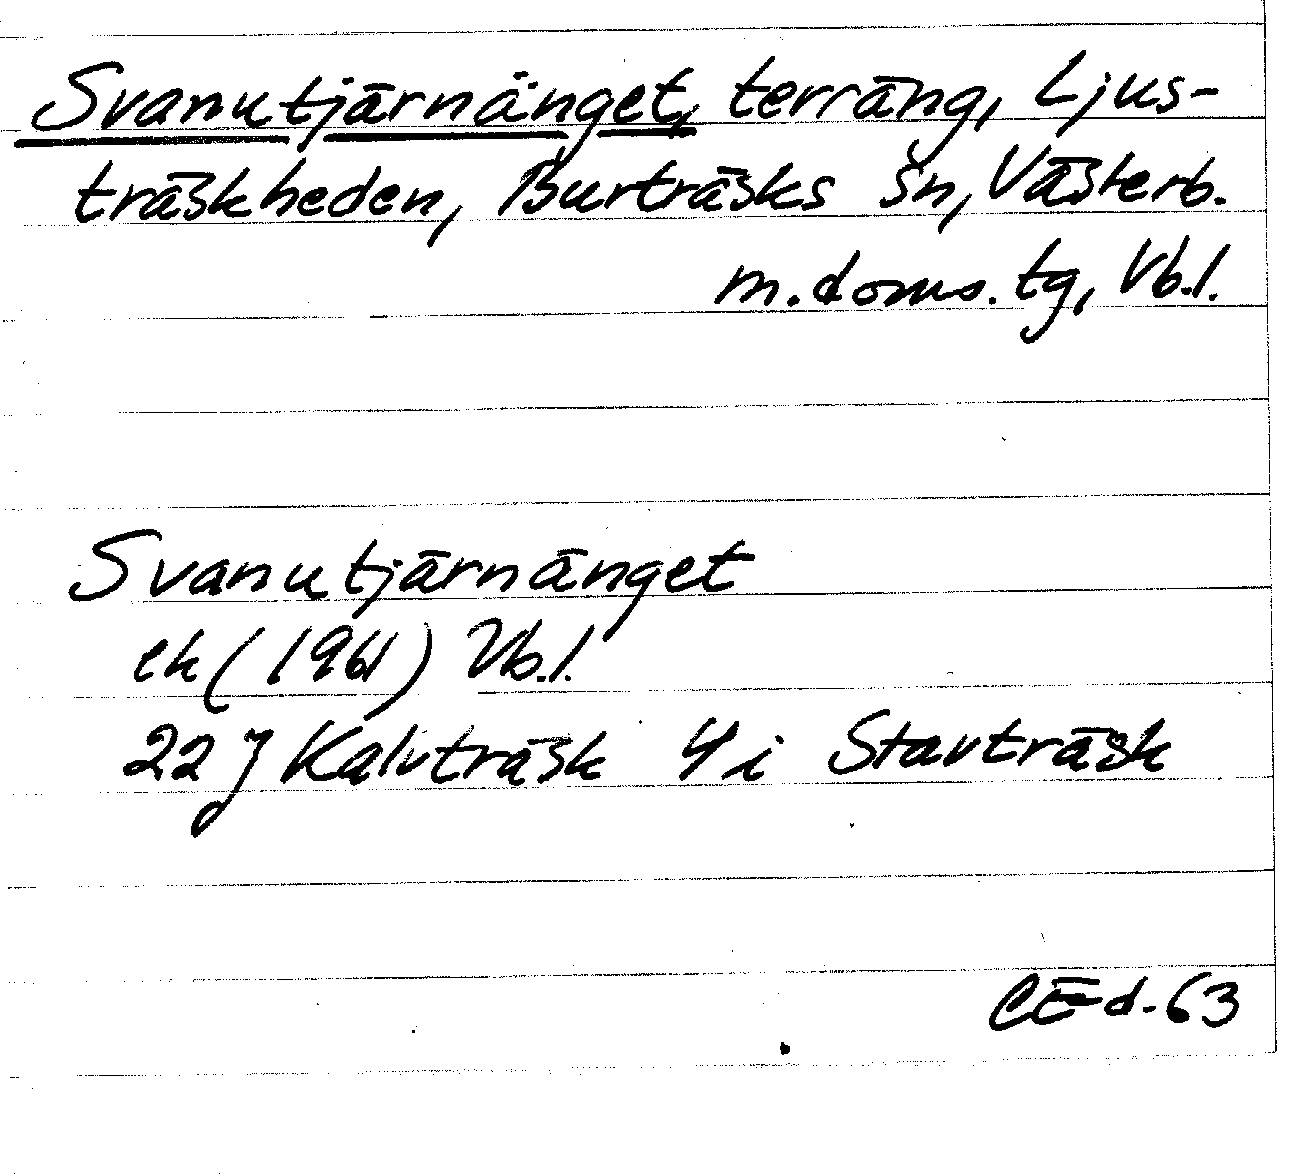 Svanutjärnänget, terräng, Ljus-
träskheden, Burträsks sn, Västerb.
m. doms. tg, Vb.l.
Svanutjärnänget
ek (1961) Vb.l.
22 J Kalvträsk 4 i Stavträsk
CEd-63